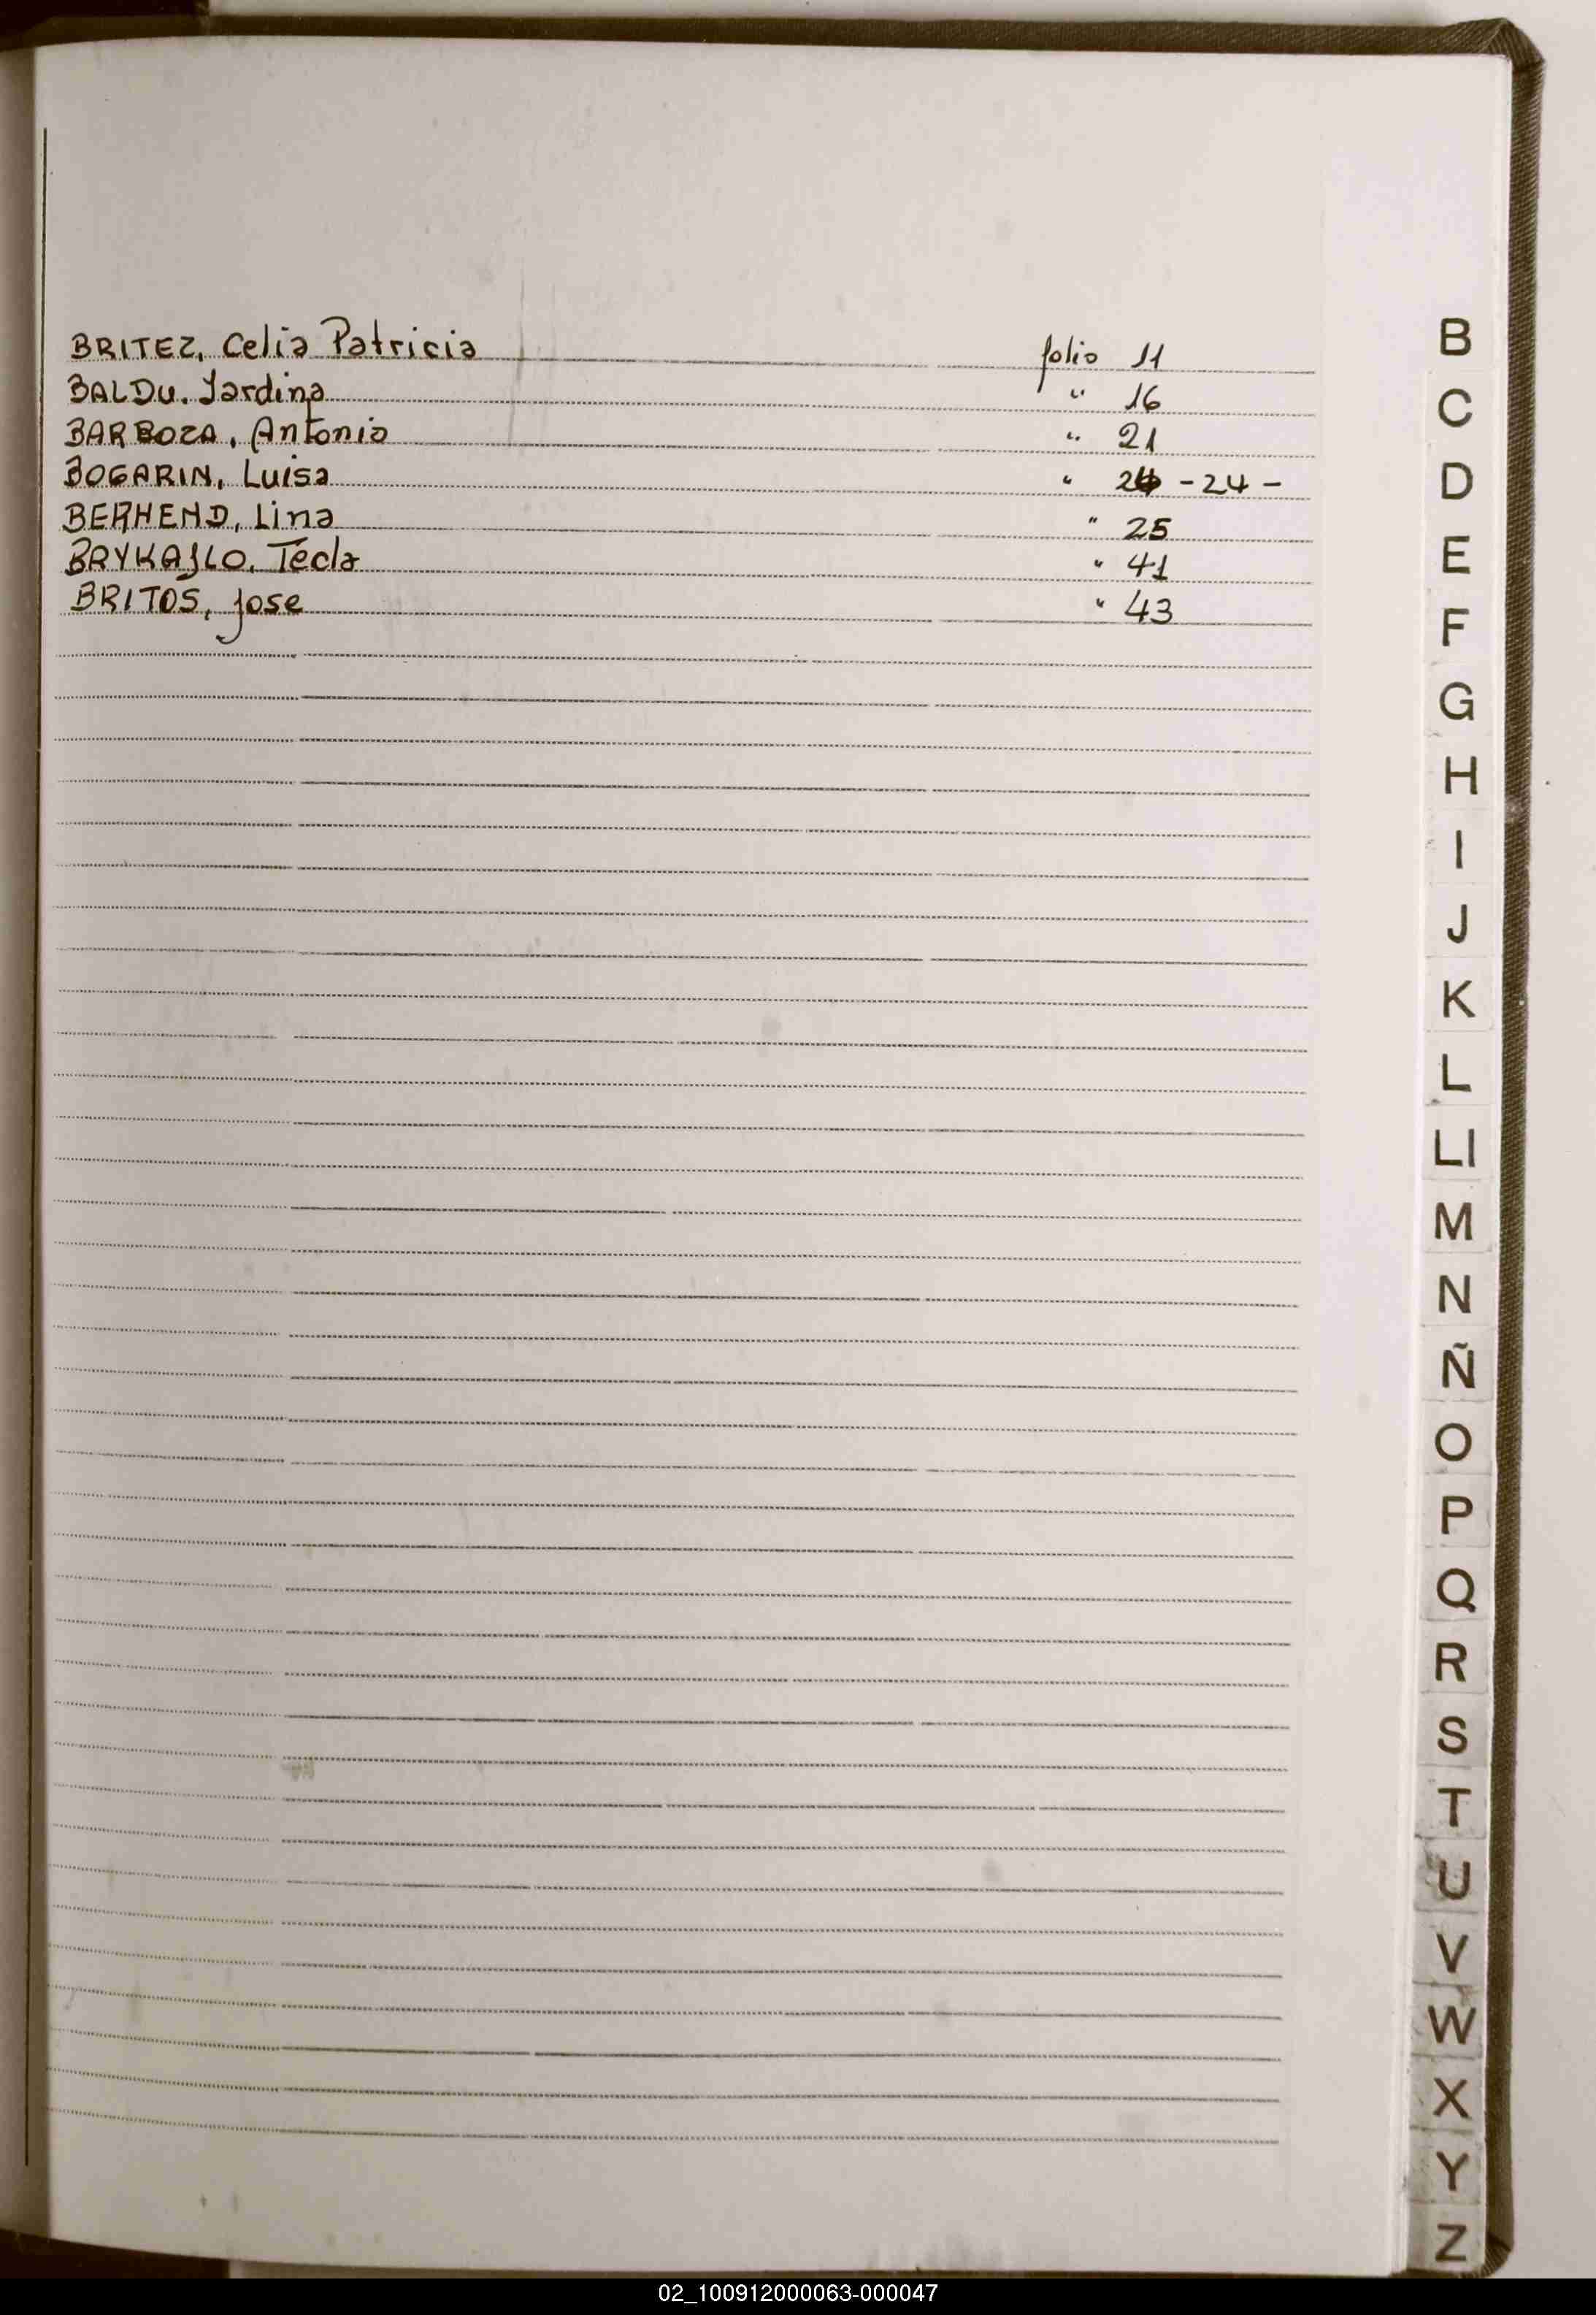 BRITEZ, Celia Patricia folio 11
BALDU. Jardina " 16
BARBOZA, Antonio " 21
BOGARIN, Luisa " 24 - 24 -
BERHEND, Lina " 25
BRYKAJLO, Tecla " 41
BRITOS, Jose " 43
B
C
D
E
F
G
H
I
J
K
L
Ll
M
N
Ñ
O
P
Q
R
S
T
U
V
W
X
Y
Z
02_100912000063-000047